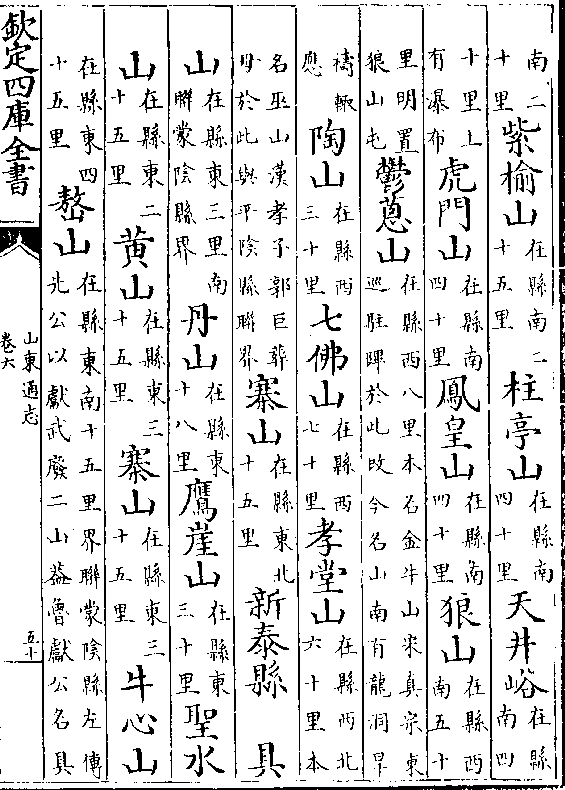 南二十里紫榆山在縣南二十五里柱亭山在縣南四十里天井峪在縣南四
十里上有瀑布虎門山在縣南四十里鳳皇山在縣南四十里狼山在縣西南五十
里明置狼山屯鬱蔥山在縣西八里本名金牛山宋真宗東巡駐蹕於此改今名山南有龍洞旱
禱輒應陶山在縣西三十里七佛山在縣西七十里孝堂山在縣西北六十里本
名巫山漢孝子郭巨葬母於此與平陰縣聯界寨山在縣東北十五里新泰縣 具
山在縣東三里南聯蒙陰縣界丹山在縣東十八里鷹崖山在縣東三十里聖水
山在縣東二十五里黄山在縣東三十五里寨山在縣東三十五里牛心山
在縣東四十五里嶅山在縣東南十五里界聯蒙陰縣左傳先公以獻武廢二山葢魯獻公名具
欽定四庫全書
山東通志
卷六
五十